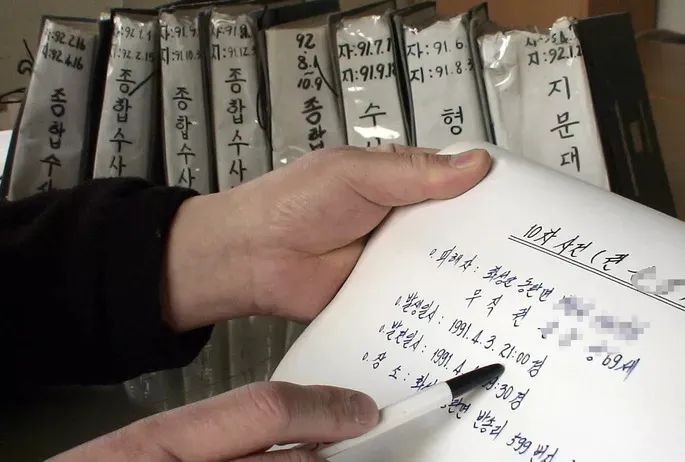 92.2.16
92.4.16
종합수사
지:92.2.15
종합수사
종합수사
종합수사
92
8.1
~
10.9
종합
자:91.7.1
지:91.9.18
수
자:91.6.
지:91.8.3
형
지:92.1.2
지문대
10차 사건 (권
o. 피해자: 화성군 동탄면
무직 권 69세
o. 발생일시: 1991. 4. 3. 21:00경
o. 발견일시: 1991. 4. :30경
o. 장소: 동탄면 반송리 599번지